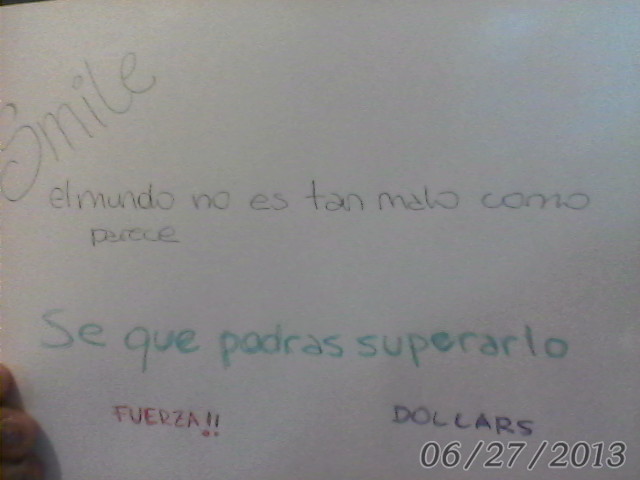 Smile
el mundo no es tan malo como
parece
Se que podras superarlo
FUERZA!!
DOLLARS
06/27/2013